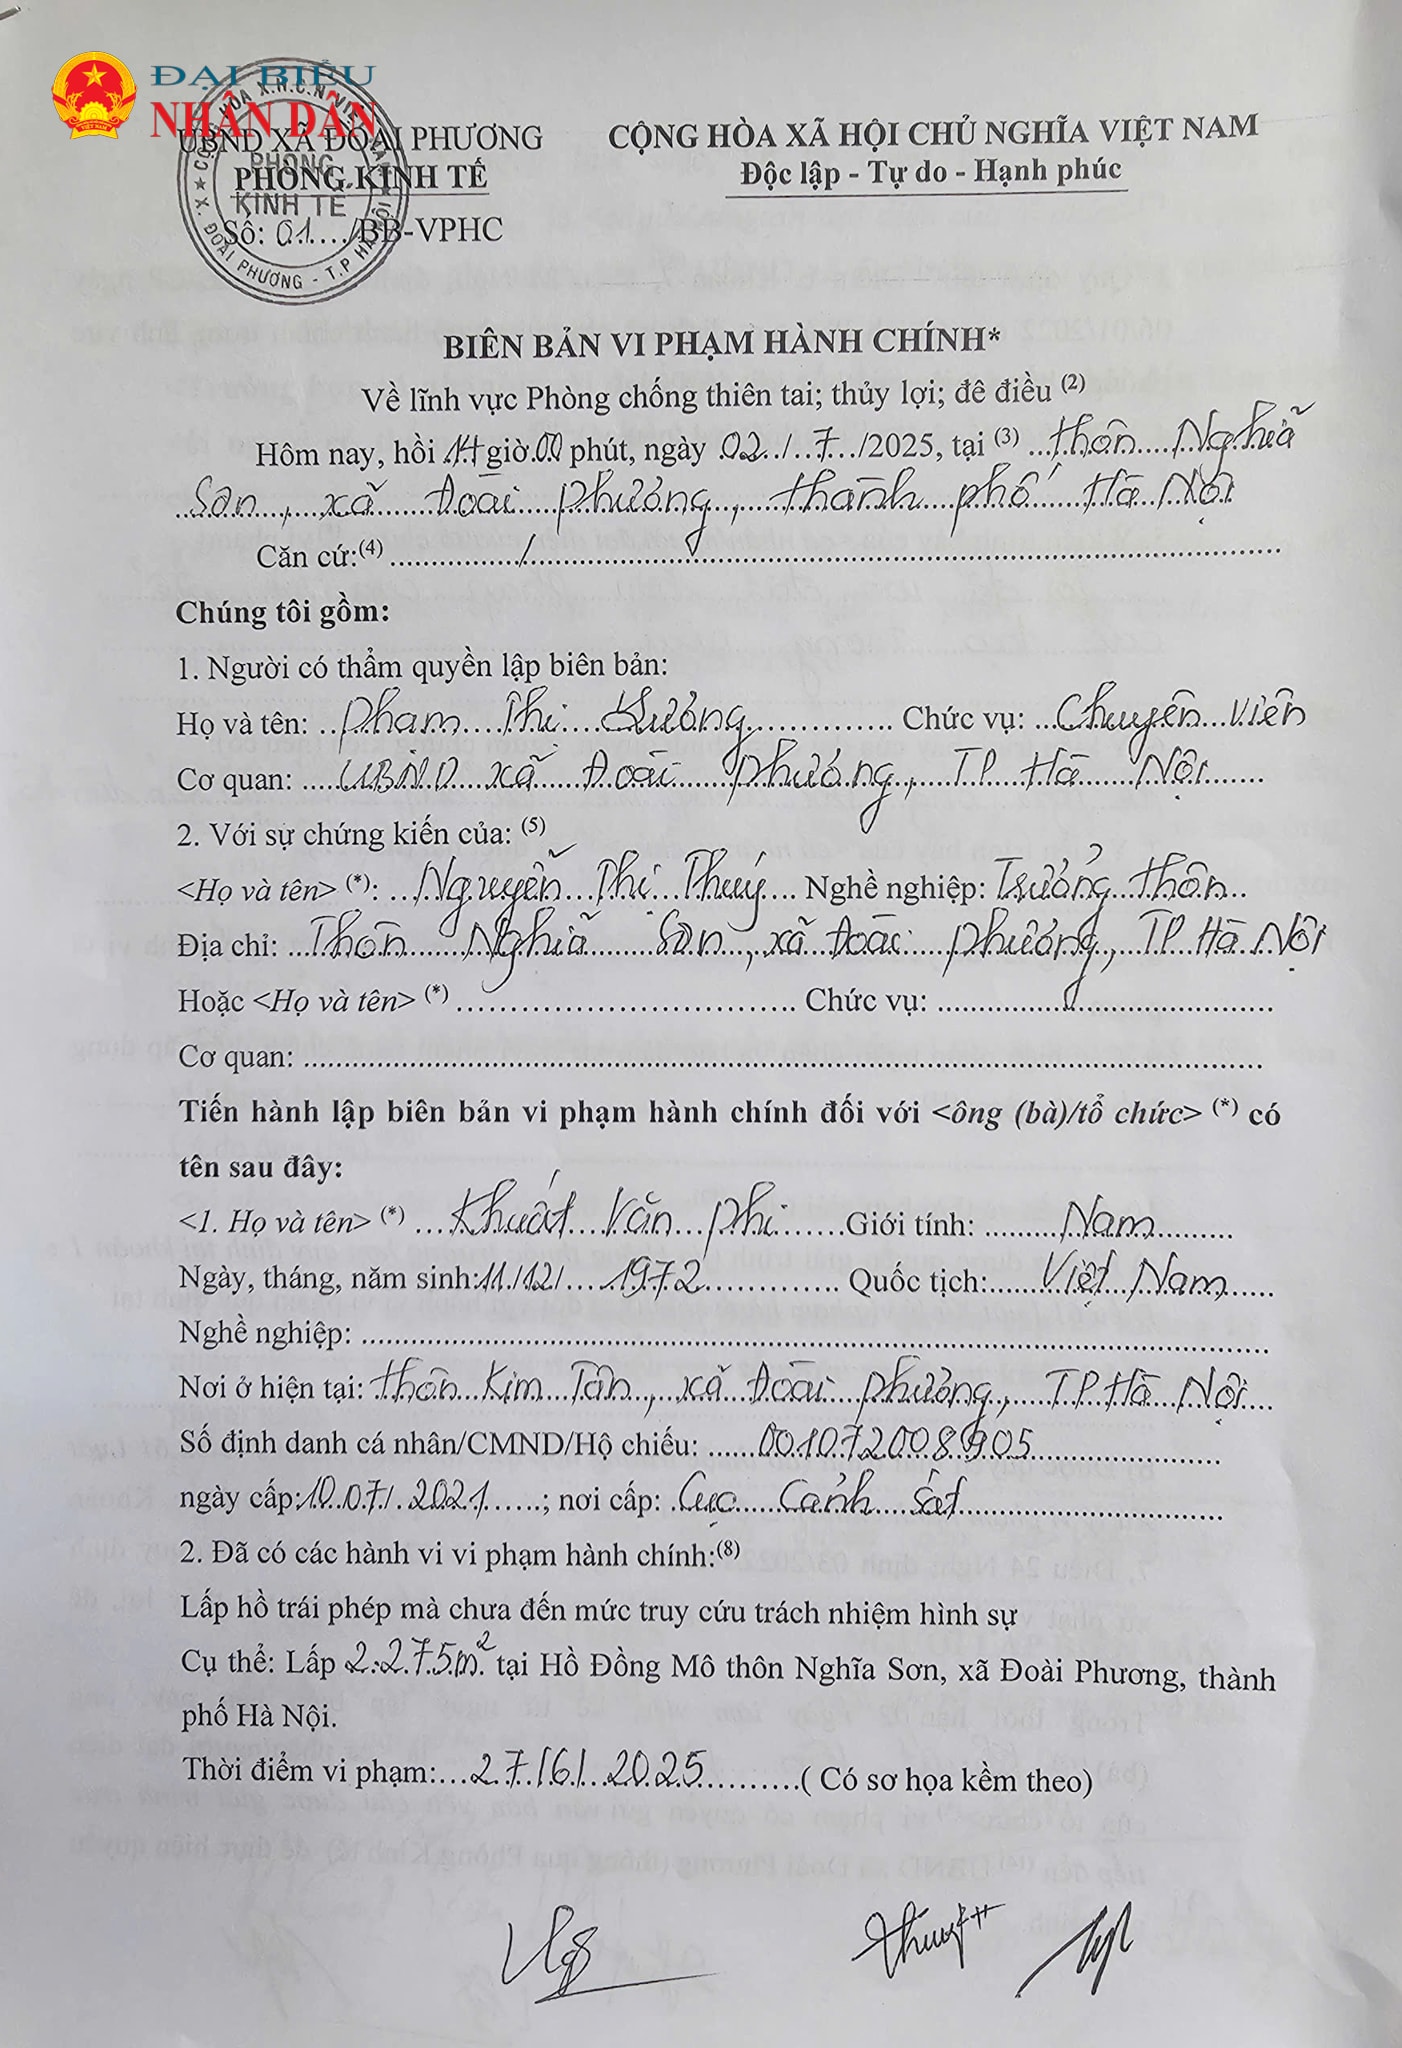 ĐẠI BIỂU
NHÂN DÂN
UBND XÃ ĐOÀI PHƯƠNG
PHÒNG KINH TẾ
Số: 01..../BB-VPHC
CỘNG HÒA XÃ HỘI CHỦ NGHĨA VIỆT NAM
Độc lập - Tự do - Hạnh phúc
PHÒNG
KINH TẾ
X. ĐOÀI PHƯƠNG - T.P HÀ NỘI
BIÊN BẢN VI PHẠM HÀNH CHÍNH*
Về lĩnh vực Phòng chống thiên tai; thủy lợi; đê điều (2)
Hôm nay, hồi 14 giờ 00 phút, ngày 02../..7.../2025, tại (3) ...thôn....Nghĩa
Sơn, xã Đoài Phương, thành phố Hà Nội
Căn cứ:(4) ................/................
Chúng tôi gồm:
1. Người có thẩm quyền lập biên bản:
Họ và tên: Phạm Thị Hương Chức vụ: Chuyên viên
Cơ quan: UBND xã Đoài Phương, TP Hà Nội
2. Với sự chứng kiến của: (5)
<Họ và tên> (*): Nguyễn Thị Thuý Nghề nghiệp: Trưởng thôn
Địa chỉ: Thôn Nghĩa Sơn, xã Đoài Phương, TP Hà Nội
Hoặc <Họ và tên> (*) ................ Chức vụ: ................
Cơ quan: ................
Tiến hành lập biên bản vi phạm hành chính đối với <ông (bà)/tổ chức> (*) có
tên sau đây:
<1. Họ và tên> (*) Khuất Văn Phi Giới tính: Nam
Ngày, tháng, năm sinh: 11/12/ 1972 Quốc tịch: Việt Nam
Nghề nghiệp: ................
Nơi ở hiện tại: thôn Kim Tân, xã Đoài Phương, TP Hà Nội
Số định danh cá nhân/CMND/Hộ chiếu: 001072008905
ngày cấp: 10.07/.2021......; nơi cấp: Cục Cảnh sát
2. Đã có các hành vi vi phạm hành chính:(8)
Lấp hồ trái phép mà chưa đến mức truy cứu trách nhiệm hình sự
Cụ thể: Lấp 2.275m² tại Hồ Đồng Mô thôn Nghĩa Sơn, xã Đoài Phương, thành
phố Hà Nội.
Thời điểm vi phạm:...27/6/.2025..........( Có sơ họa kềm theo)